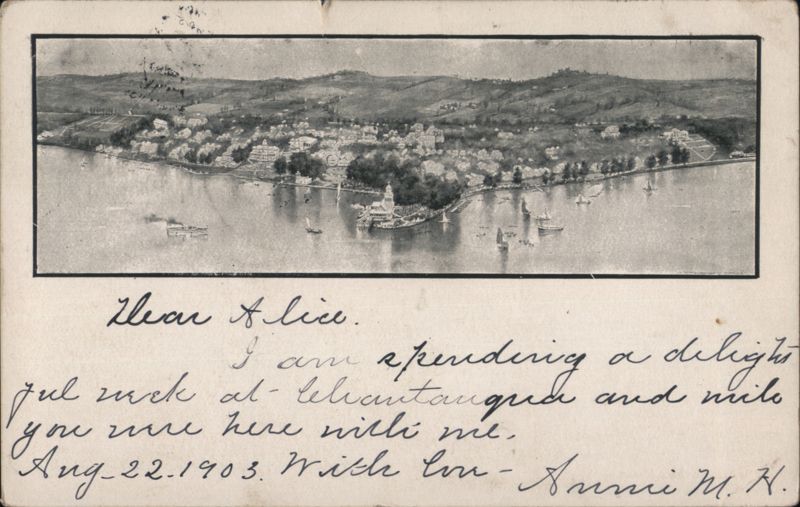 Dear Alice.
I am spending a delight
ful week at Chautauqua and wish
you were here with me.
Aug. 22. 1903. With love - Annie M. H.